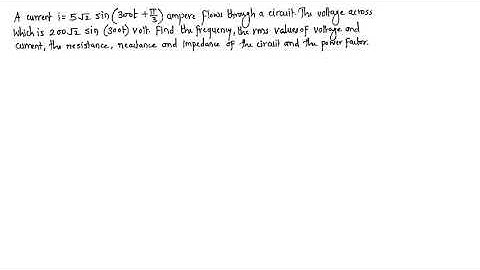 A current i = 5√2 sin (300t + π/3) ampere flows through a circuit. The voltage across
which is 200√2 sin (300t) volt. Find the frequency, the rms values of voltage and
current, the resistance, reactance and impedance of the circuit and the power factor.